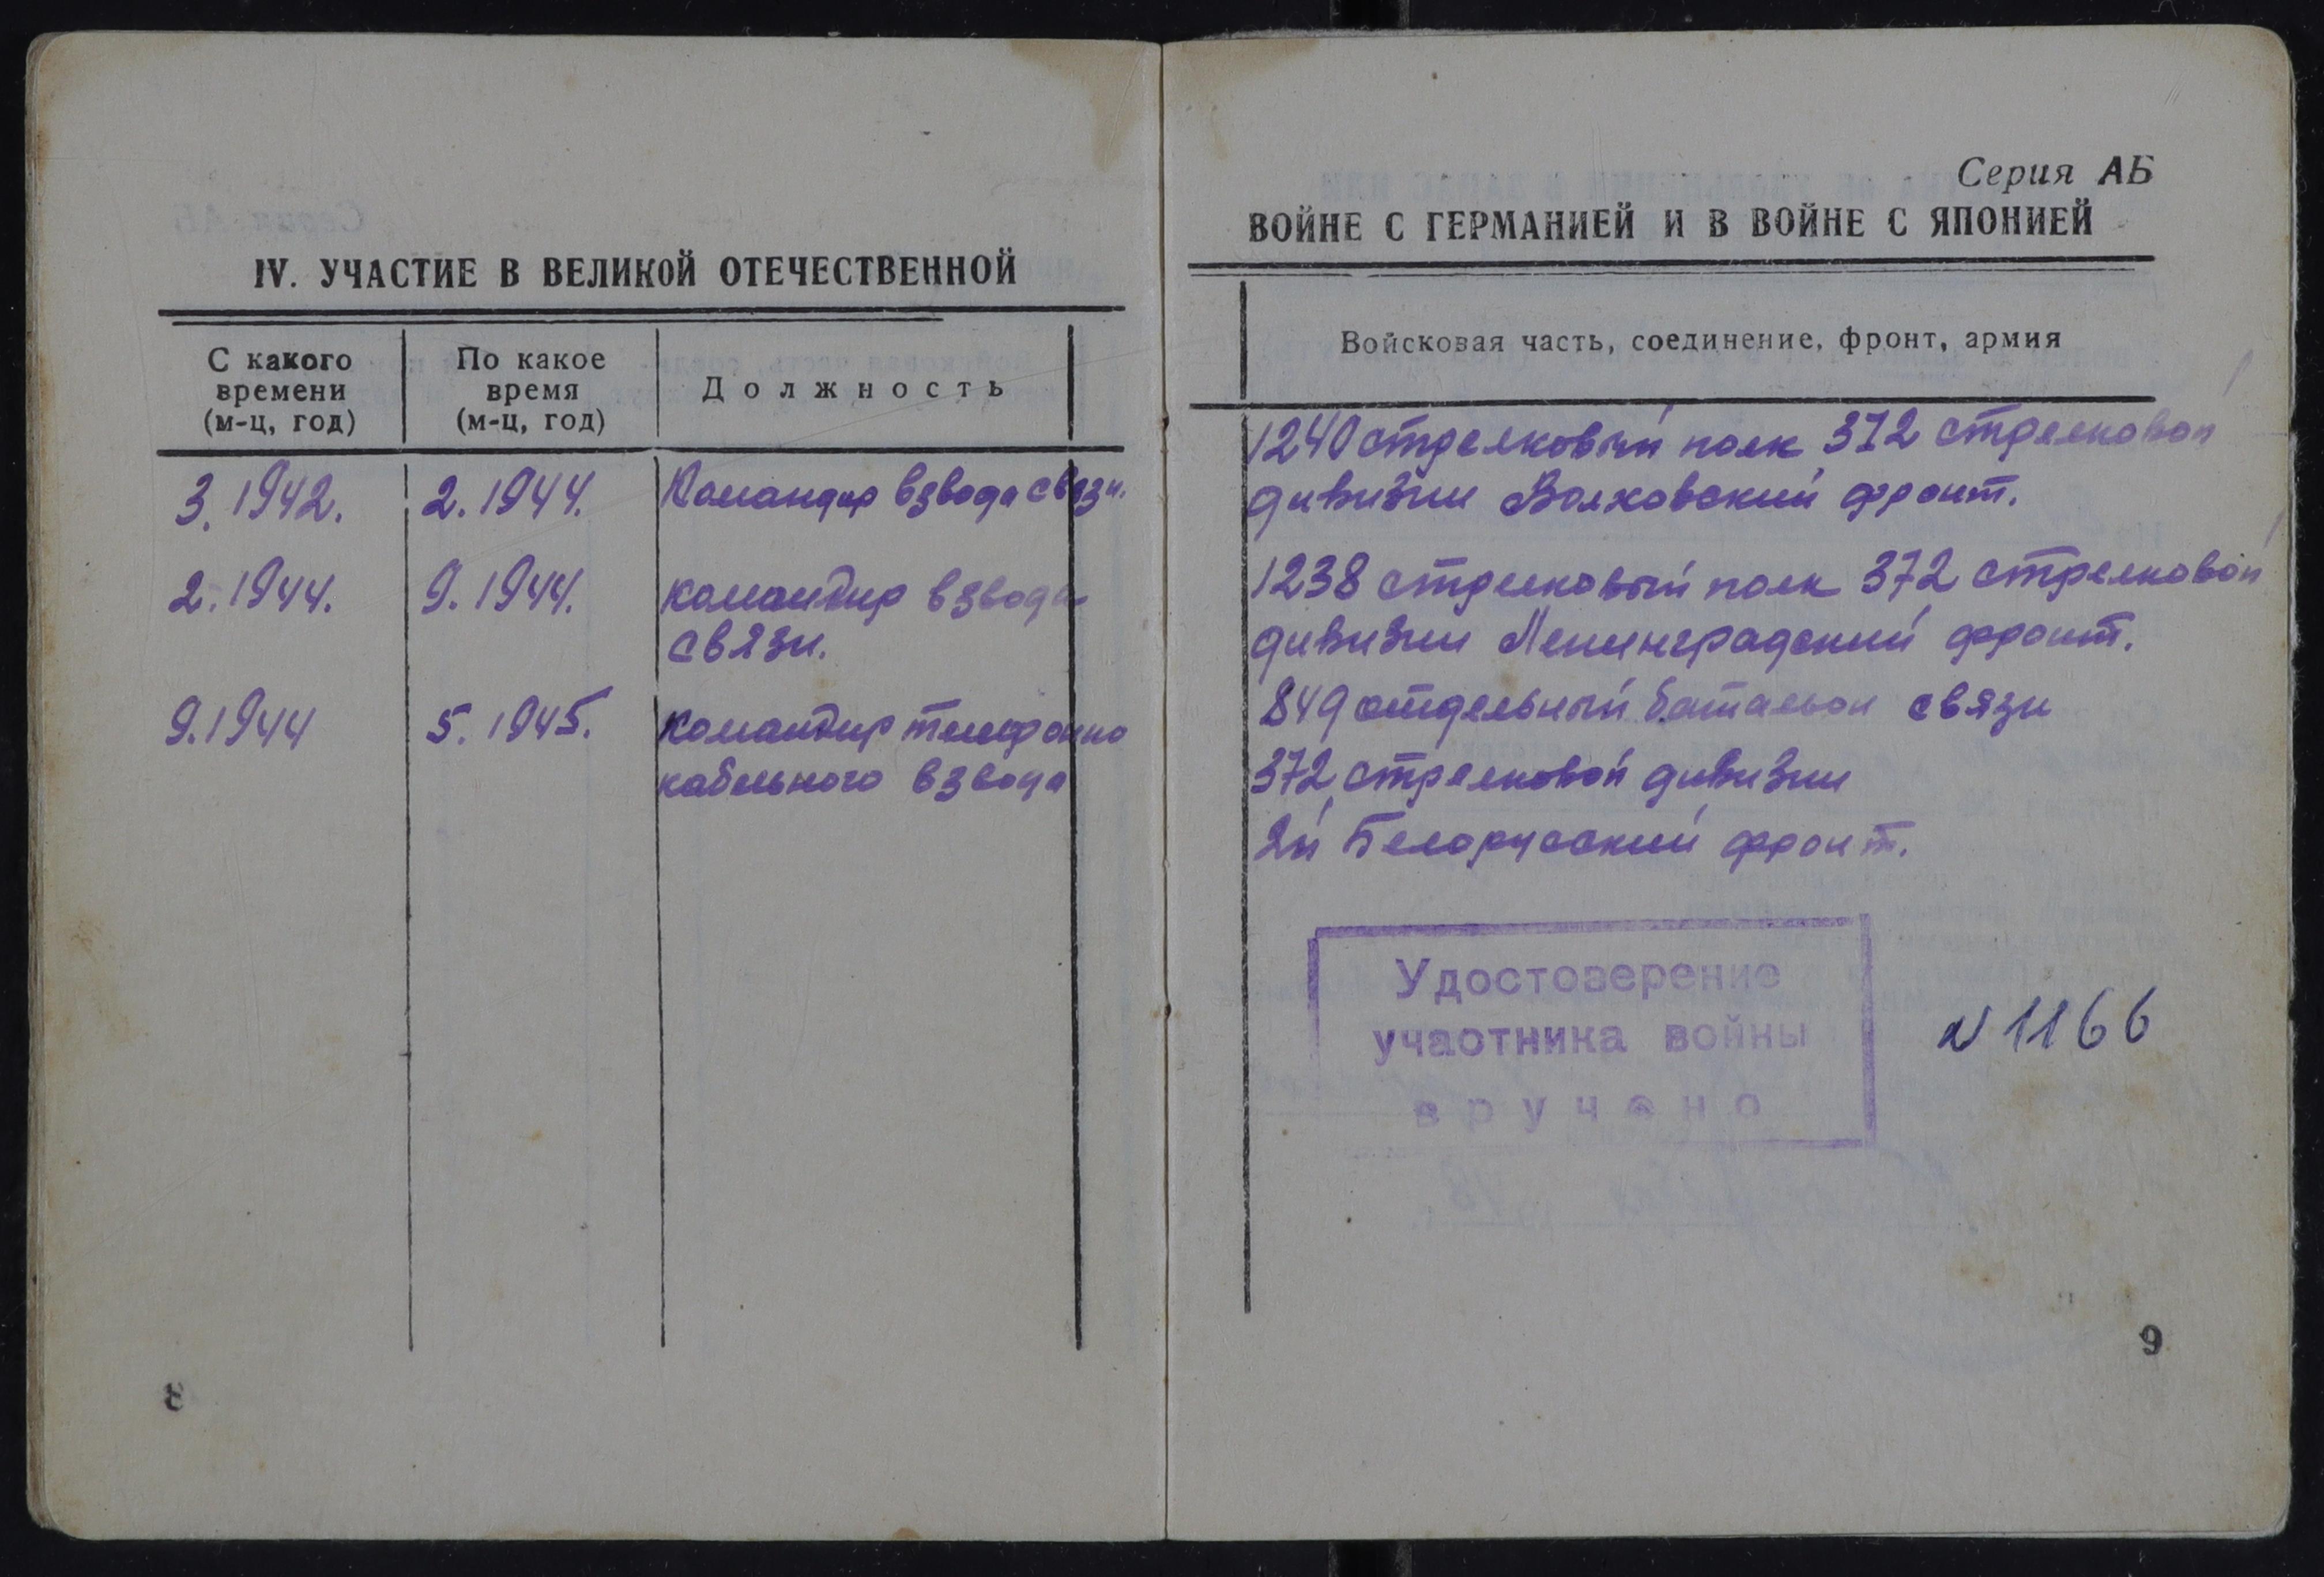 IV. УЧАСТИЕ В ВЕЛИКОЙ ОТЕЧЕСТВЕННОЙ
С какого
времени
(м-ц, год)
По какое
время
(м-ц, год)
Должность
3. 1942.
2. 1944.
Командир взвода связи.
2. 1944.
9. 1944.
командир взвода
связи.
9. 1944
5. 1945.
командир телефонно
кабельного взвода
8
Серия АБ
ВОЙНЕ С ГЕРМАНИЕЙ И В ВОЙНЕ С ЯПОНИЕЙ
Войсковая часть, соединение, фронт, армия
1240 стрелковый полк 372 стрелковой
дивизии Волховский фронт.
1238 стрелковый полк 372 стрелковой
дивизии Ленинградский фронт.
849 отдельный батальон связи
372 стрелковой дивизии
2й Белорусский фронт.
Удостоверение
участника войны
вручено
N 1166
9